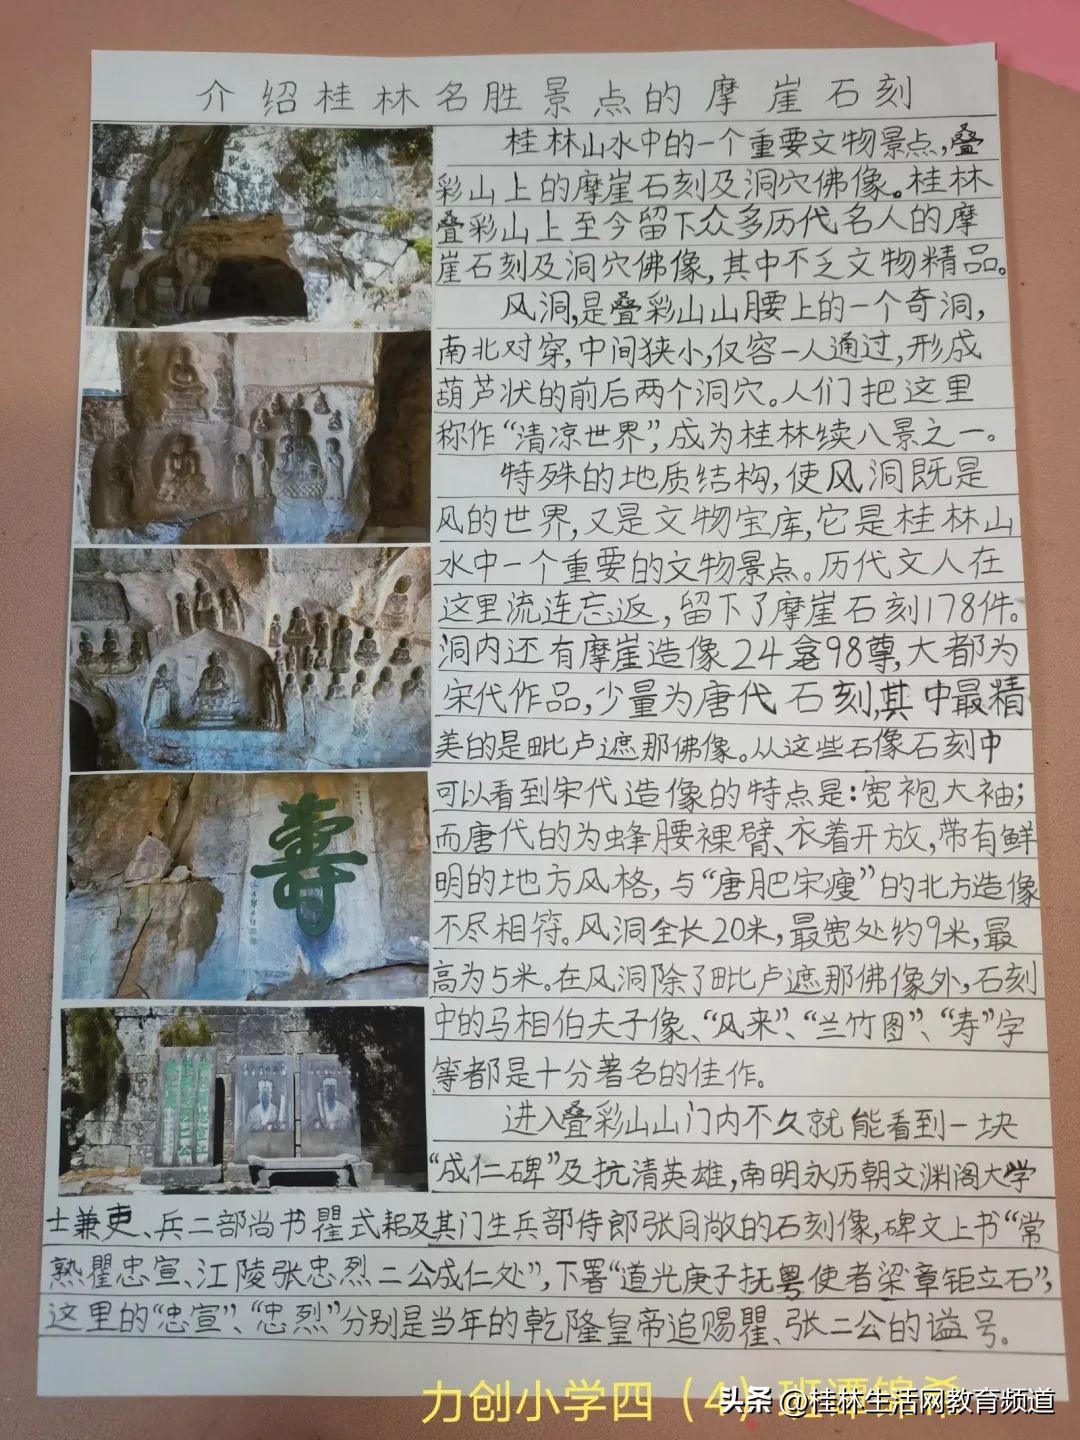 介绍桂林名胜景点的摩崖石刻
桂林山水中的一个重要文物景点,叠
彩山上的摩崖石刻及洞穴佛像。桂林
叠彩山上至今留下众多历代名人的摩
崖石刻及洞穴佛像,其中不乏文物精品。
风洞,是叠彩山山腰上的一个奇洞,
南北对穿,中间狭小,仅容一人通过,形成
葫芦状的前后两个洞穴。人们把这里
称作“清凉世界”,成为桂林续八景之一。
特殊的地质结构,使风洞既是
风的世界,又是文物宝库,它是桂林山
水中一个重要的文物景点。历代文人在
这里流连忘返,留下了摩崖石刻178件。
洞内还有摩崖造像24龛98尊,大都为
宋代作品,少量为唐代石刻,其中最精
美的是毗卢遮那佛像。从这些石像石刻中
可以看到宋代造像的特点是:宽袍大袖;
而唐代的为蜂腰裸臂、衣着开放,带有鲜
明的地方风格,与“唐肥宋瘦”的北方造像
不尽相符。风洞全长20米,最宽处约9米,最
高为5米。在风洞除了毗卢遮那佛像外,石刻
中的马相伯夫子像、“风来”、“兰竹图”、“寿”字
等都是十分著名的佳作。
进入叠彩山山门内不久就能看到一块
“成仁碑”及抗清英雄,南明永历朝文渊阁大学
士兼吏、兵二部尚书瞿式耜及其门生兵部侍郎张同敞的石刻像,碑文上书“常
熟瞿忠宣、江陵张忠烈二公成仁处”,下署“道光庚子抚粤使者梁章钜立石”,
这里的“忠宣”、“忠烈”分别是当年的乾隆皇帝追赐瞿、张二公的谥号。
寿
力创小学四（4）班谭锦希
头条 @桂林生活网教育频道